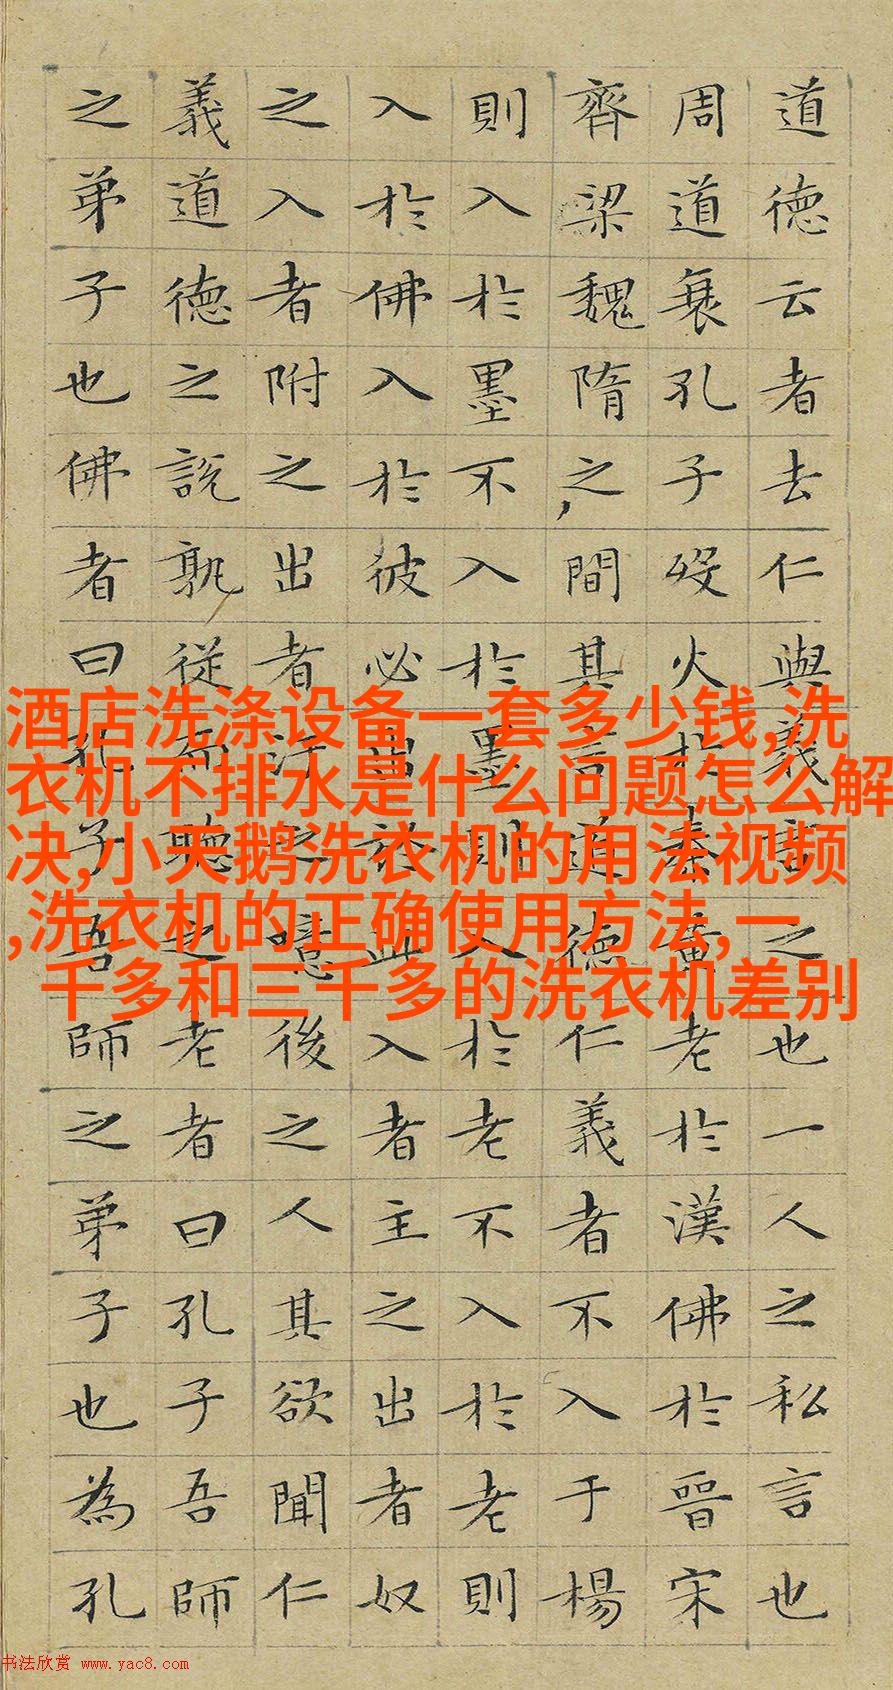 道德云者去仁與義言之也一人之私言也
周道衰孔子歿火於秦黃老於漢佛於晉宋
齊梁魏隋之間其言道德仁義者不入于楊
則入於墨不入於墨則入於老不入於老則
入於佛入於彼必出於此入者主之出者奴
之入者附之出者汙之噫後之人其欲聞仁
義道德之説孰從而聽之老者曰孔子吾師
之弟子也佛者曰孔子吾師之弟子也為孔
酒店洗涤设备一套多少钱,洗
衣机不排水是什么问题怎么解
决,小天鹅洗衣机的用法视频
,洗衣机的正确使用方法,一
千多和三千多的洗衣机差别
书法欣赏 www.yac8.com